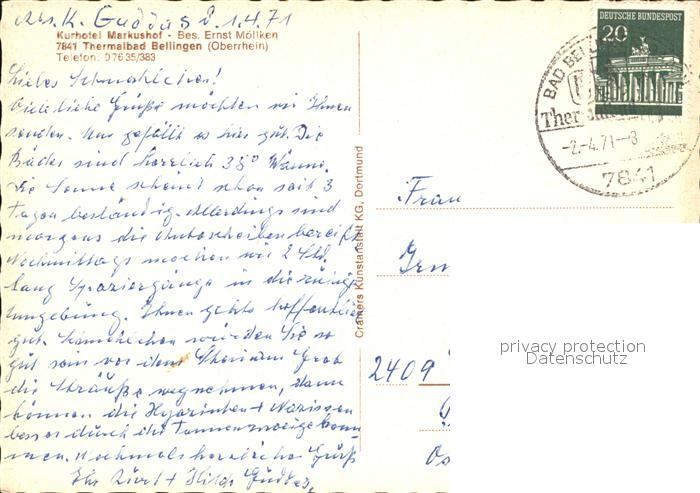 Abs. K. Guddas d. 1.4.71
Kurhotel Markushof - Bes. Ernst Möllken
7841 Thermalbad Bellingen (Oberrhein)
Telefon: 07635/383
Liebes Schwälchen!
Viele liebe Grüße möchten wir Ihnen
senden. Uns gefällt es hier gut. Die
Bäder sind herrlich 38° Wärme.
Die Sonne scheint schon seit 3
Tagen beständig. Allerdings sind
morgens die Autoscheiben bereift
Nachmittags machen wir 2 Std.
lang Spaziergänge in die ruhige
Umgebung. Ihnen gehts hoffentlich
gut. würden Sie so
gut sein vor dem Grab
die Sträuße wegnehmen, dann
können die Hyazinthen + Narzissen
besser durch die Tannenzweige kom-
men. Nochmals herzliche Grüße
Ihr + Hilde Guddas
Cramers Kunstanstalt KG, Dortmund
DEUTSCHE BUNDESPOST
20
BAD BELL
Ther
-2.-4.71--8
7841
Frau
2409
Os
privacy protection
Datenschutz